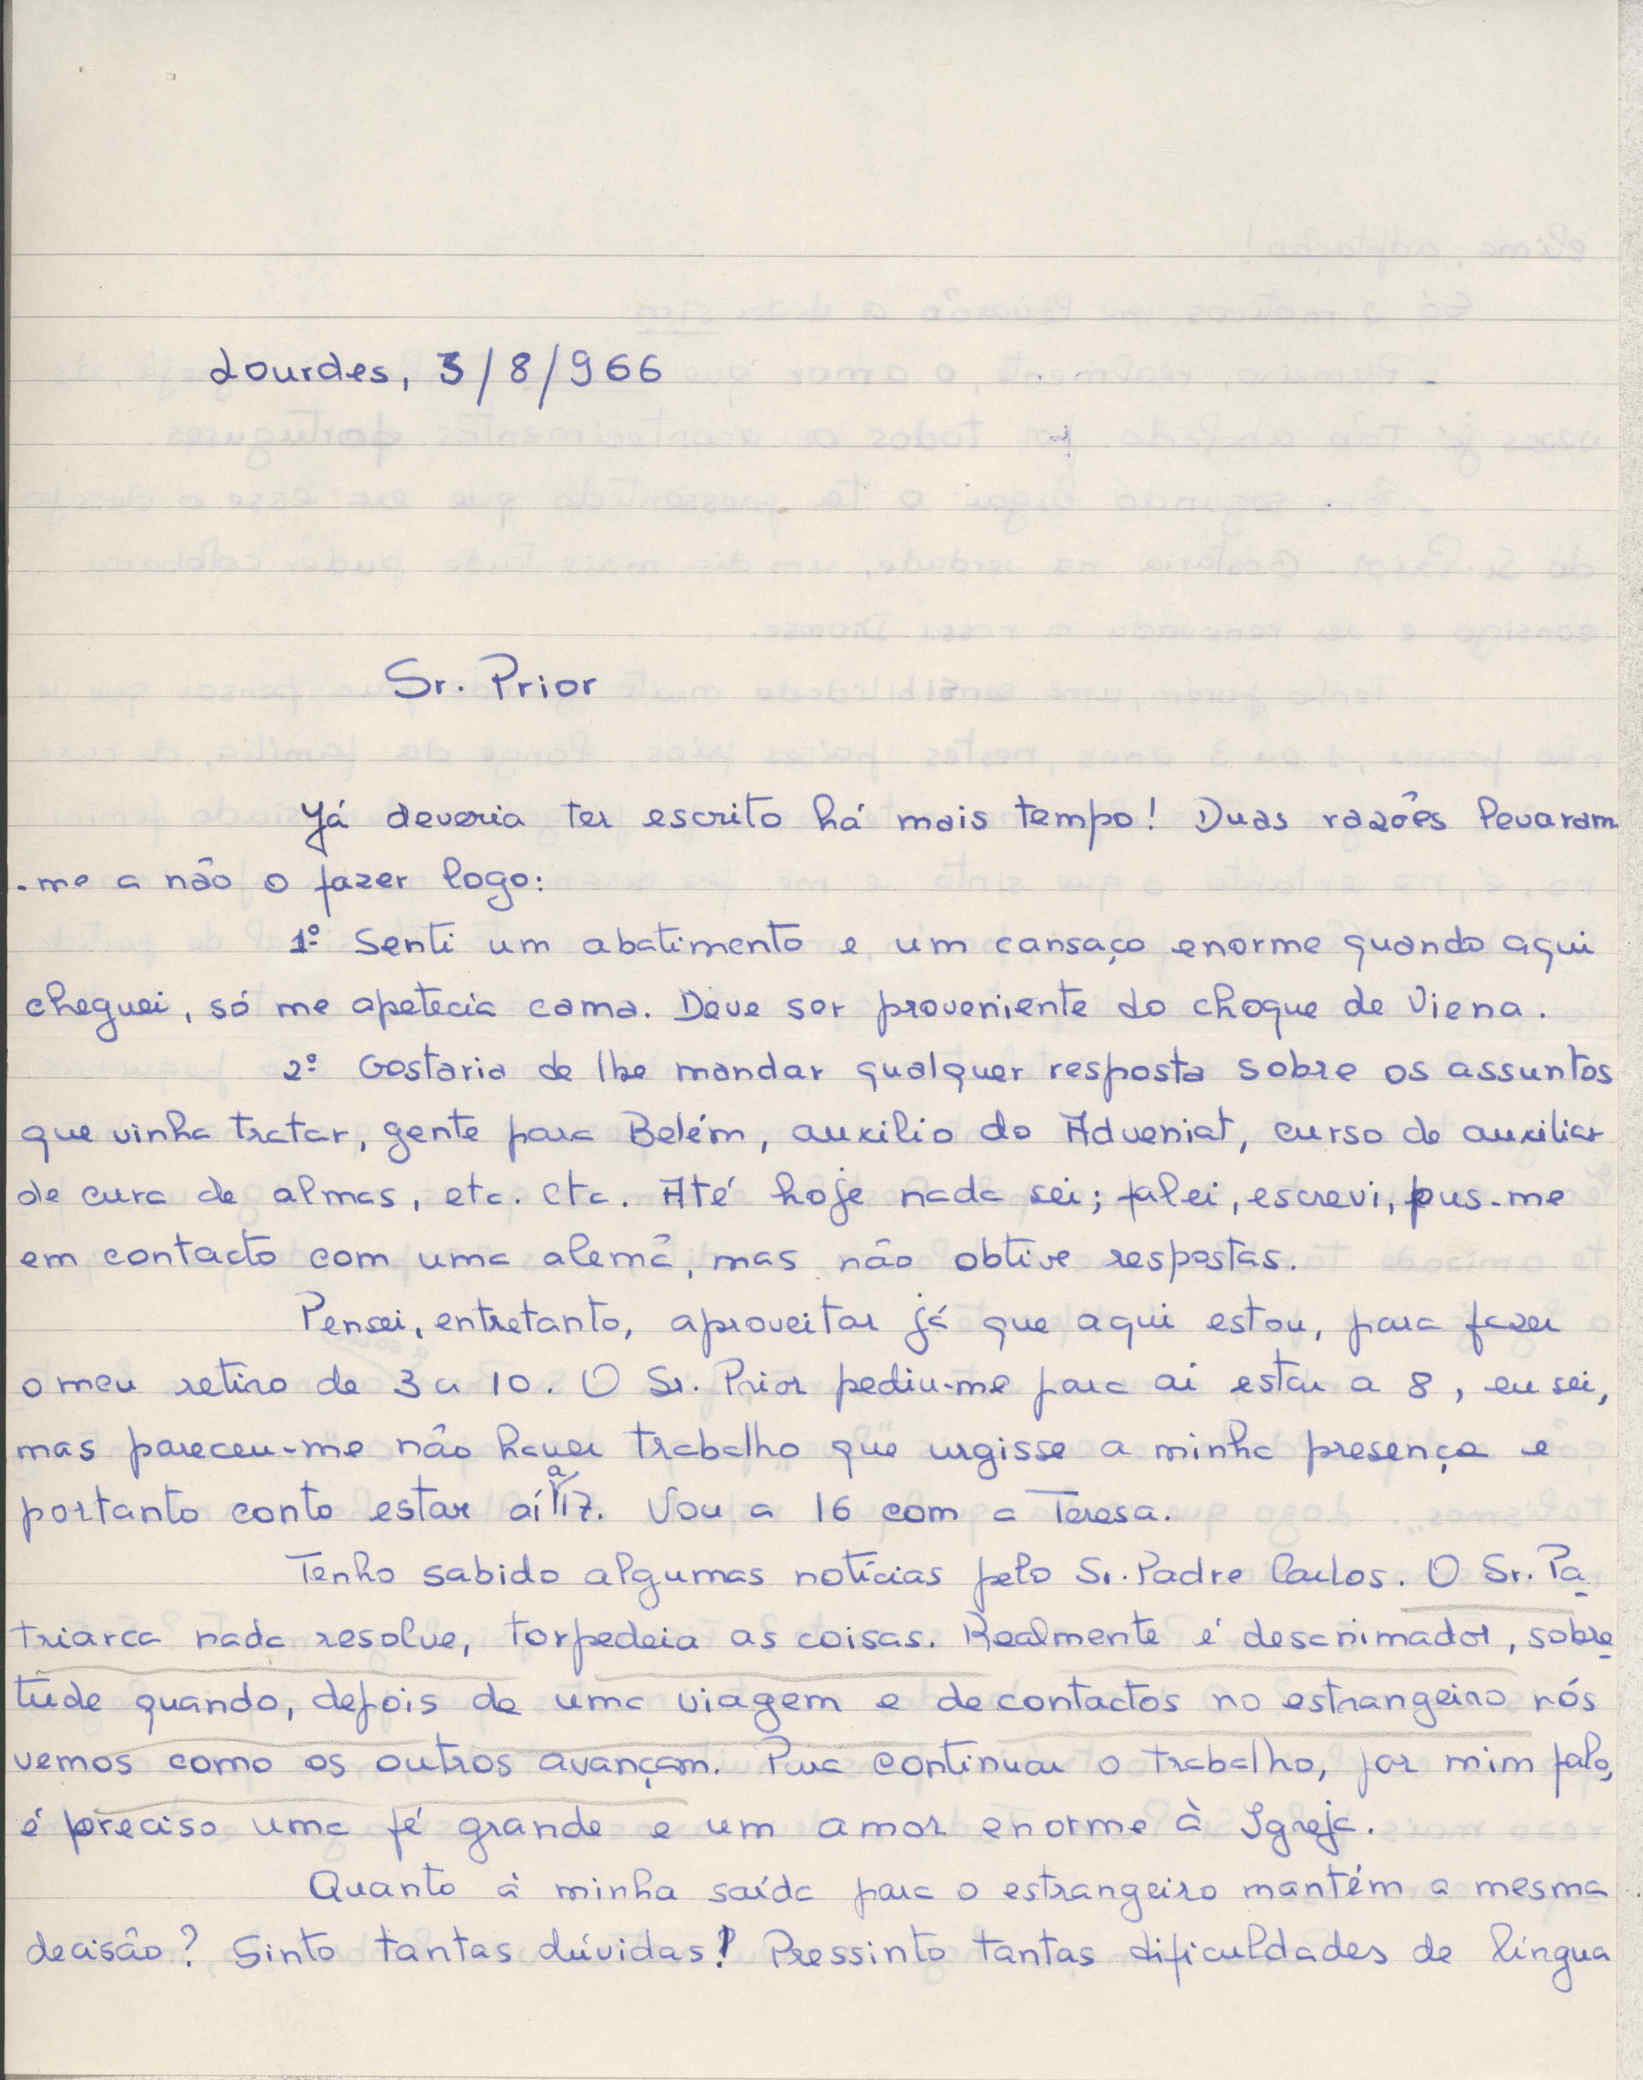 Lourdes, 3/8/966
Sr. Prior
Já deveria ter escrito há mais tempo! Duas razões levaram
-me a não o fazer logo:
1º Senti um abatimento e um cansaço enorme quando aqui
cheguei, só me apetecia cama. Deve ser proveniente do choque de Viena.
2º Gostaria de lhe mandar qualquer resposta sobre os assuntos
que vinha tratar, gente para Belém, auxilio do Adveniat, curso de auxiliar
de cura de almas, etc. etc. Até hoje nada sei; falei, escrevi, pus-me
em contacto com uma alemã, mas não obtive respostas.
Pensei, entretanto, aproveitar já que aqui estou, para fazer
o meu retiro de 3 a 10. O Sr. Prior pediu-me para aí estar a 8, eu sei,
mas pareceu-me não haver trabalho que urgisse a minha presença e
portanto conto estar aí a 17. Vou a 16 com a Teresa.
Tenho sabido algumas notícias pelo Sr. Padre Carlos. O Sr. Pa-
triarca nada resolve, torpedeia as coisas. Realmente é desanimador, sobre-
tudo quando, depois de uma viagem e de contactos no estrangeiro nós
vemos como os outros avançam. Para continuar o trabalho, por mim falo,
é preciso uma fé grande e um amor enorme à Igreja.
Quanto à minha saída para o estrangeiro mantém a mesma
decisão? Sinto tantas dúvidas! Pressinto tantas dificuldades de língua